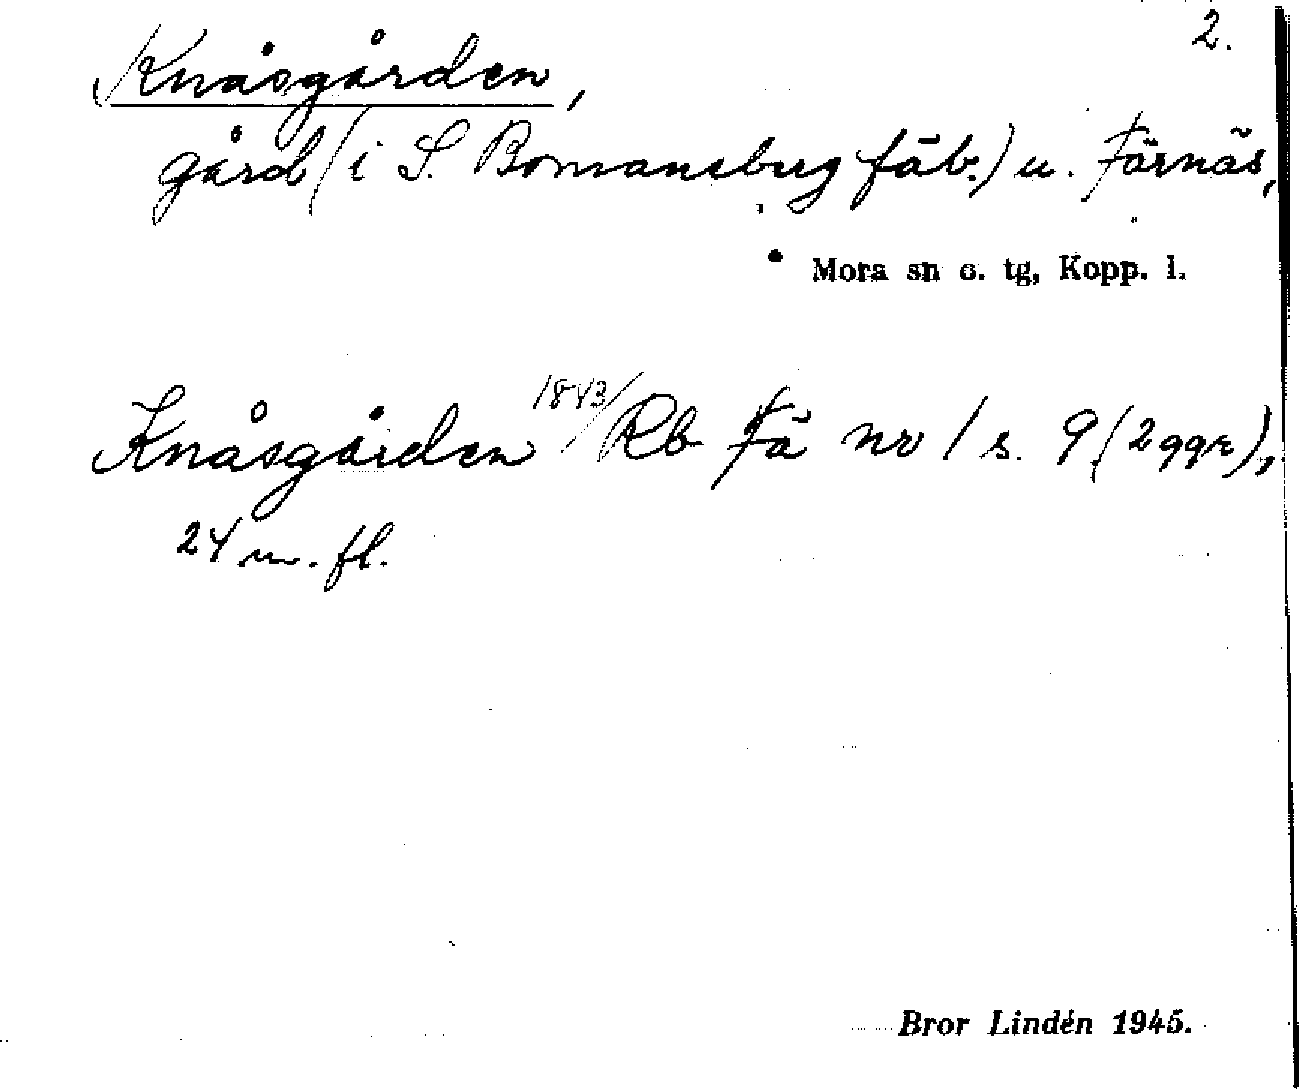 2.
Knåsgården,
gård (i S. Bomansberg fäb.) u. Färnäs,
Mora sn o. tg, Kopp. l.
Knåsgården 1843/Rb Fä nr 1 s. 9 (2 ggr),
24 m. fl.
Bror Lindén 1945.